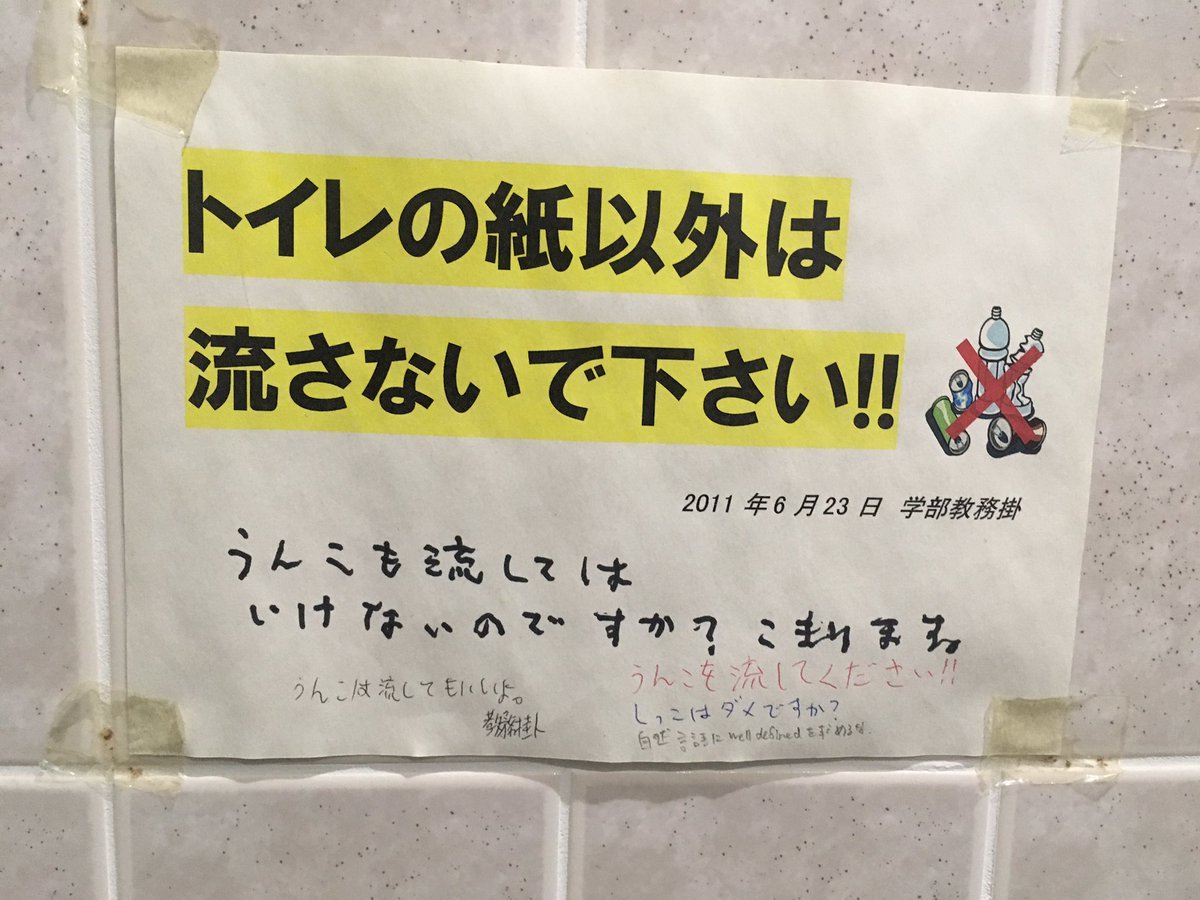 トイレの紙以外は
流さないで下さい!!
2011 年 6 月 23 日 学部教務掛
うんこも流しては
いけないのですか? こまります。
うんこは流してもいいよ。
教務掛
うんこを流してください!!
しっこはダメですか?
自然言語に well defined を求めるな.